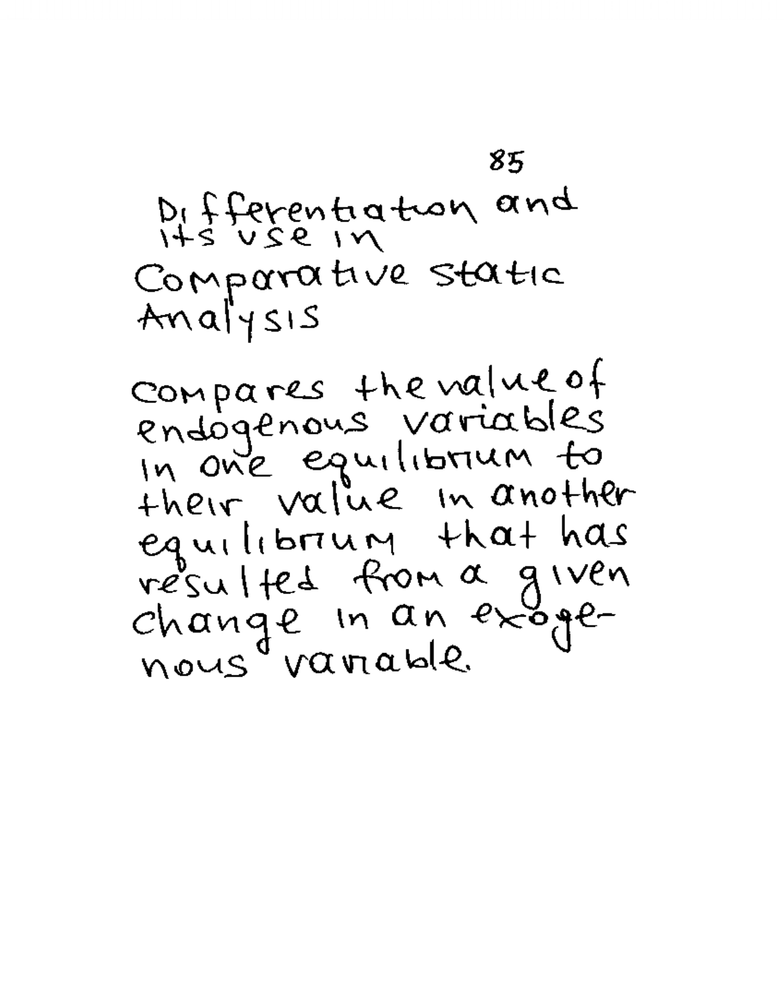 85
Differentiation and
its use in
Comparative static
Analysis
compares the value of
endogenous variables
in one equilibrium to
their value in another
equilibrium that has
resulted from a given
change in an exoge-
nous variable.